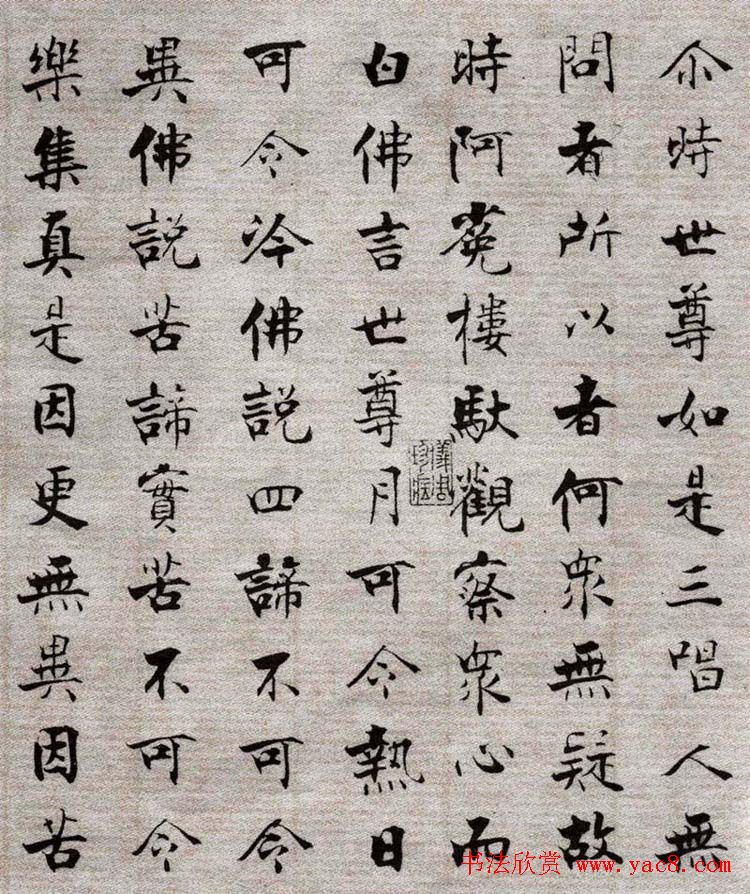 尒時世尊如是三唱人無
問者所以者何眾無疑故
時阿莬樓馱觀察眾心而
白佛言世尊月可令熱日
可令冷佛説四諦不可令
異佛説苦諦實苦不可令
樂集真是因更無異因苦
儀周珍藏
书法欣赏 www.yac8.com